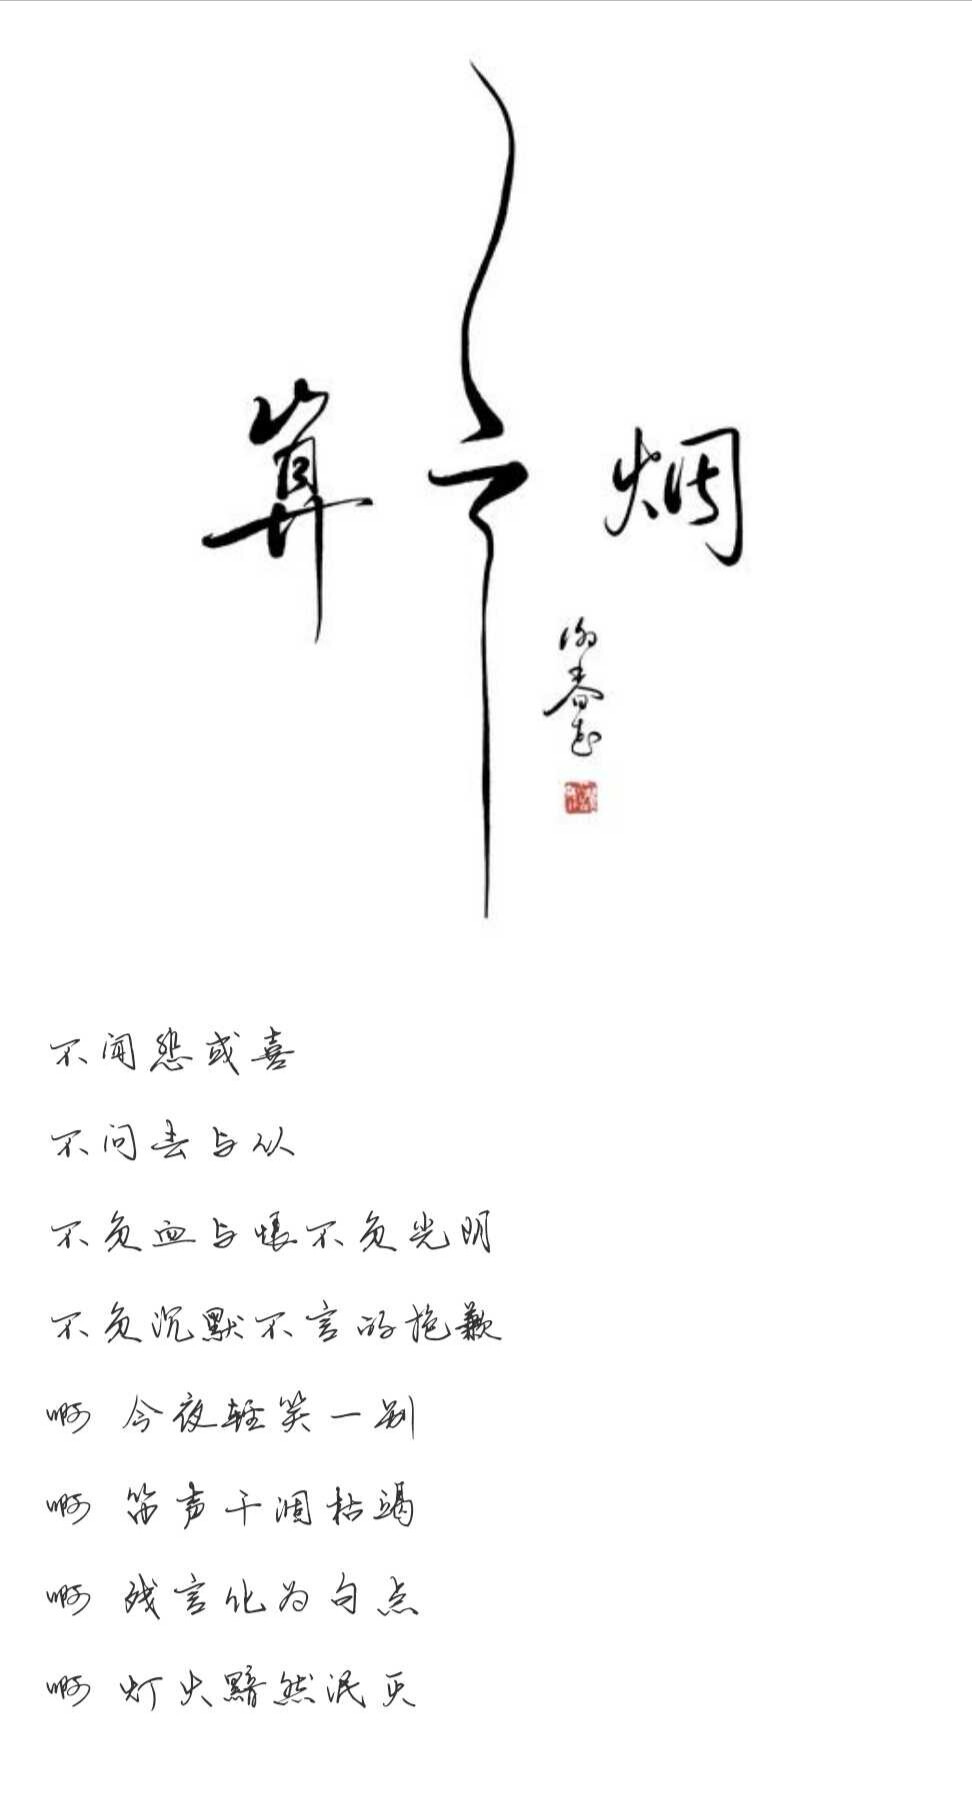 算云烟
谢春花
不闻怨或喜
不问去与从
不负血与 不负光明
不负沉默不言的抱歉
啊 今夜轻笑一别
啊 笛声干涸枯竭
啊 残言化为句点
啊 灯火黯然泯灭